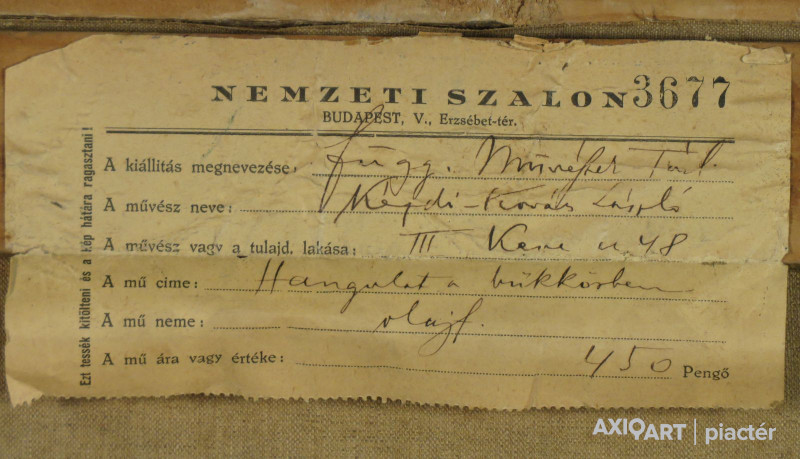 NEMZETI SZALON 3677
BUDAPEST, V., Erzsébet-tér.
A kiállitás megnevezése: Függ. Művészek Társ.
A művész neve: Kézdi-Kovács László
A művész vagy a tulajd. lakása: III Kere u 48
A mű cime: Hangulat a bükkösben
A mű neme: olajf.
A mű ára vagy értéke: 450 Pengő
Ezt tessék kitölteni és a kép hátára ragasztani!
AXIOART | piactér